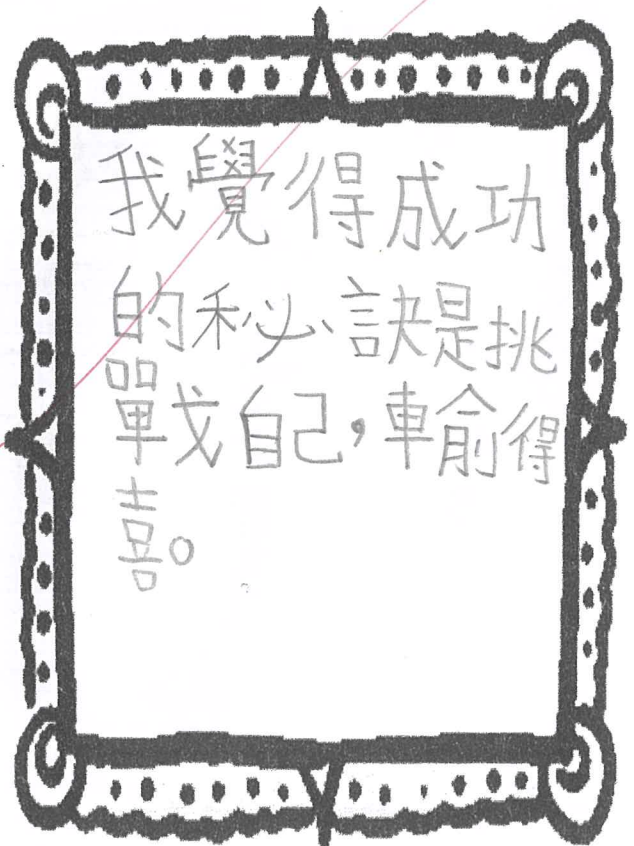 我覺得成功
的秘訣是挑
戰自己，輸得
喜。